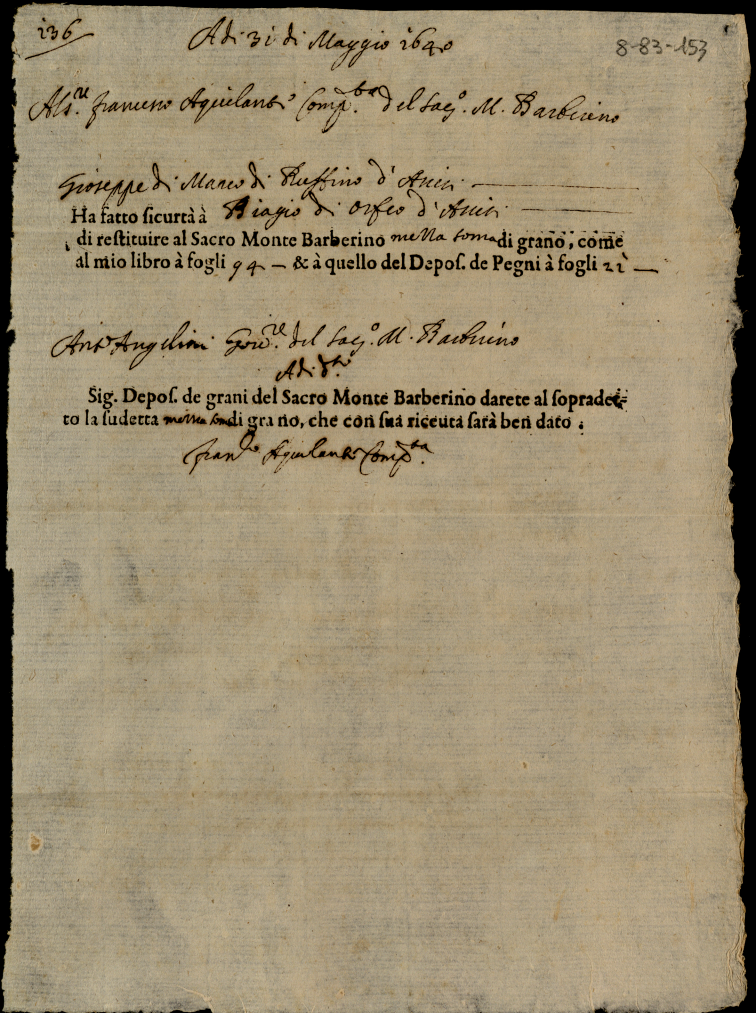 136
8-83-153
Adi 31 di Maggio 1640
Al S.re francesco Aquilanti Comp.ta del Sac.o M. Barberino
Gioseppe di Marco di Ruffino d'
Ha fatto sicurtà à Biagio di Orfeo d'
di restituire al Sacro Monte Barberino mezza soma di grano, come
al mio libro à fogli 94 — & à quello del Depos. de Pegni à fogli 22 —
Ant.o Angelini Gov.re del Sac.o M. Barberino
Adi d.o
Sig. Depos. de grani del Sacro Monte Barberino darete al sopradet-
to la sudetta mezza soma di grano, che con sua riceuta sarà ben dato.
fran.co Aquilanti Comp.ta